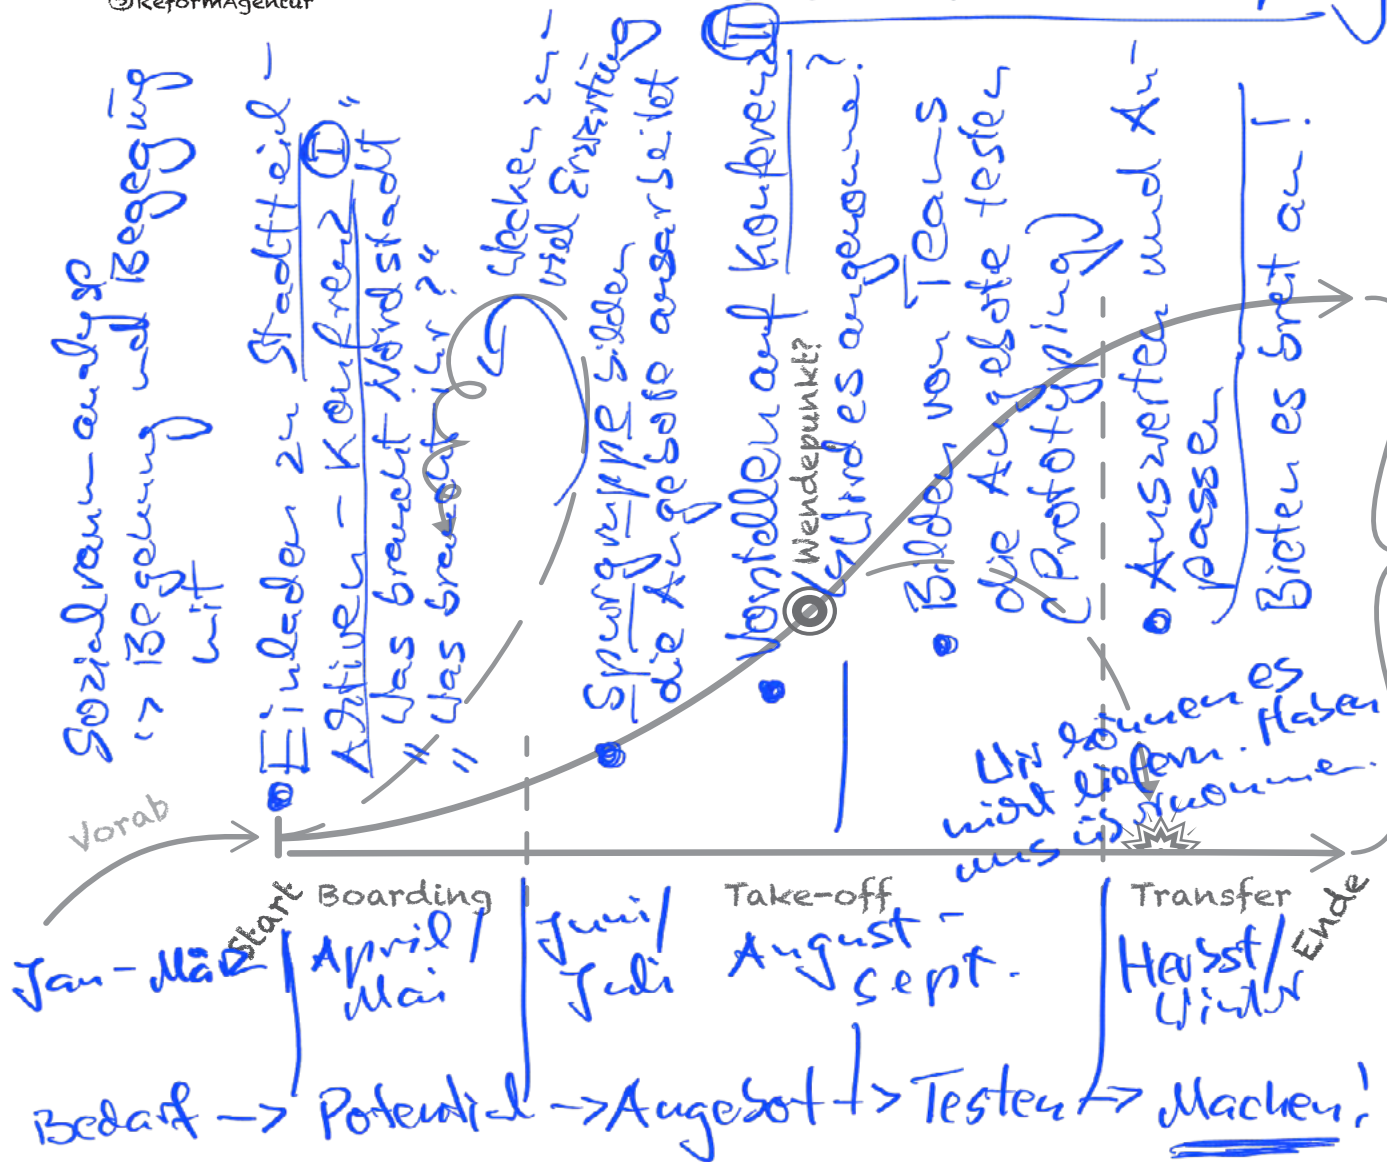 ©ReformAgentur
Sozialraumanalyse
-> Begehung und Begegnung
mit
Einladen zu Stadtteil-
Aktiven-Konferenz I "
"Was braucht Nordstadt
"Was braucht ihr?"
Wecken zu-
viel Erwartung
Spurgruppe bilden
die Angebote ausarbeitet
II
Vorstellen auf Konferenz
Wendepunkt?
Wird es angenommen?
Bilden von Teams
die Angebote testen
(Prototyping)
Auswerten und An-
passen
Bieten es breit an!
Wir können es
nicht liefern. Haben
uns übernommen.
Vorab
Start
Boarding
Take-off
Transfer
Ende
Jan-März
April/
Mai
Juni/
Juli
August-
Sept.
Herbst/
Winter
Bedarf -> Potential -> Angebot -> Testen -> Machen!